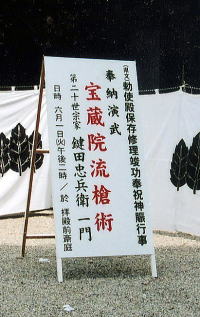 (重文)勅使殿保存修理竣功奉祝神賑行事
奉納演武
宝蔵院流槍術
第二十世宗家 鍵田忠兵衛一門
日時 六月一日(火)午後二時/於 拝殿前斎庭